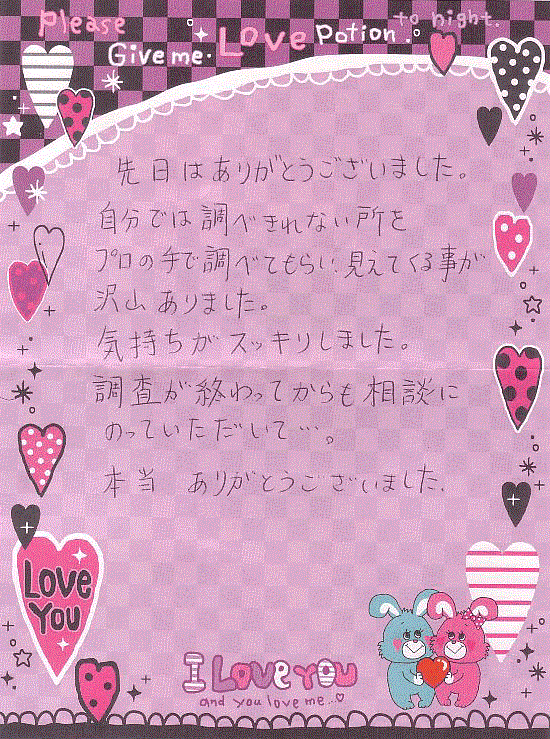 Please
Give me.
Love Potion
to night.
先日はありがとうございました。
自分では調べきれない所を
プロの手で調べてもらい、見えてくる事が
沢山ありました。
気持ちがスッキリしました。
調査が終わってからも相談に
のっていただいて…。
本当 ありがとうございました.
LOVE
YOU
I LOVE YOU
and you love me...